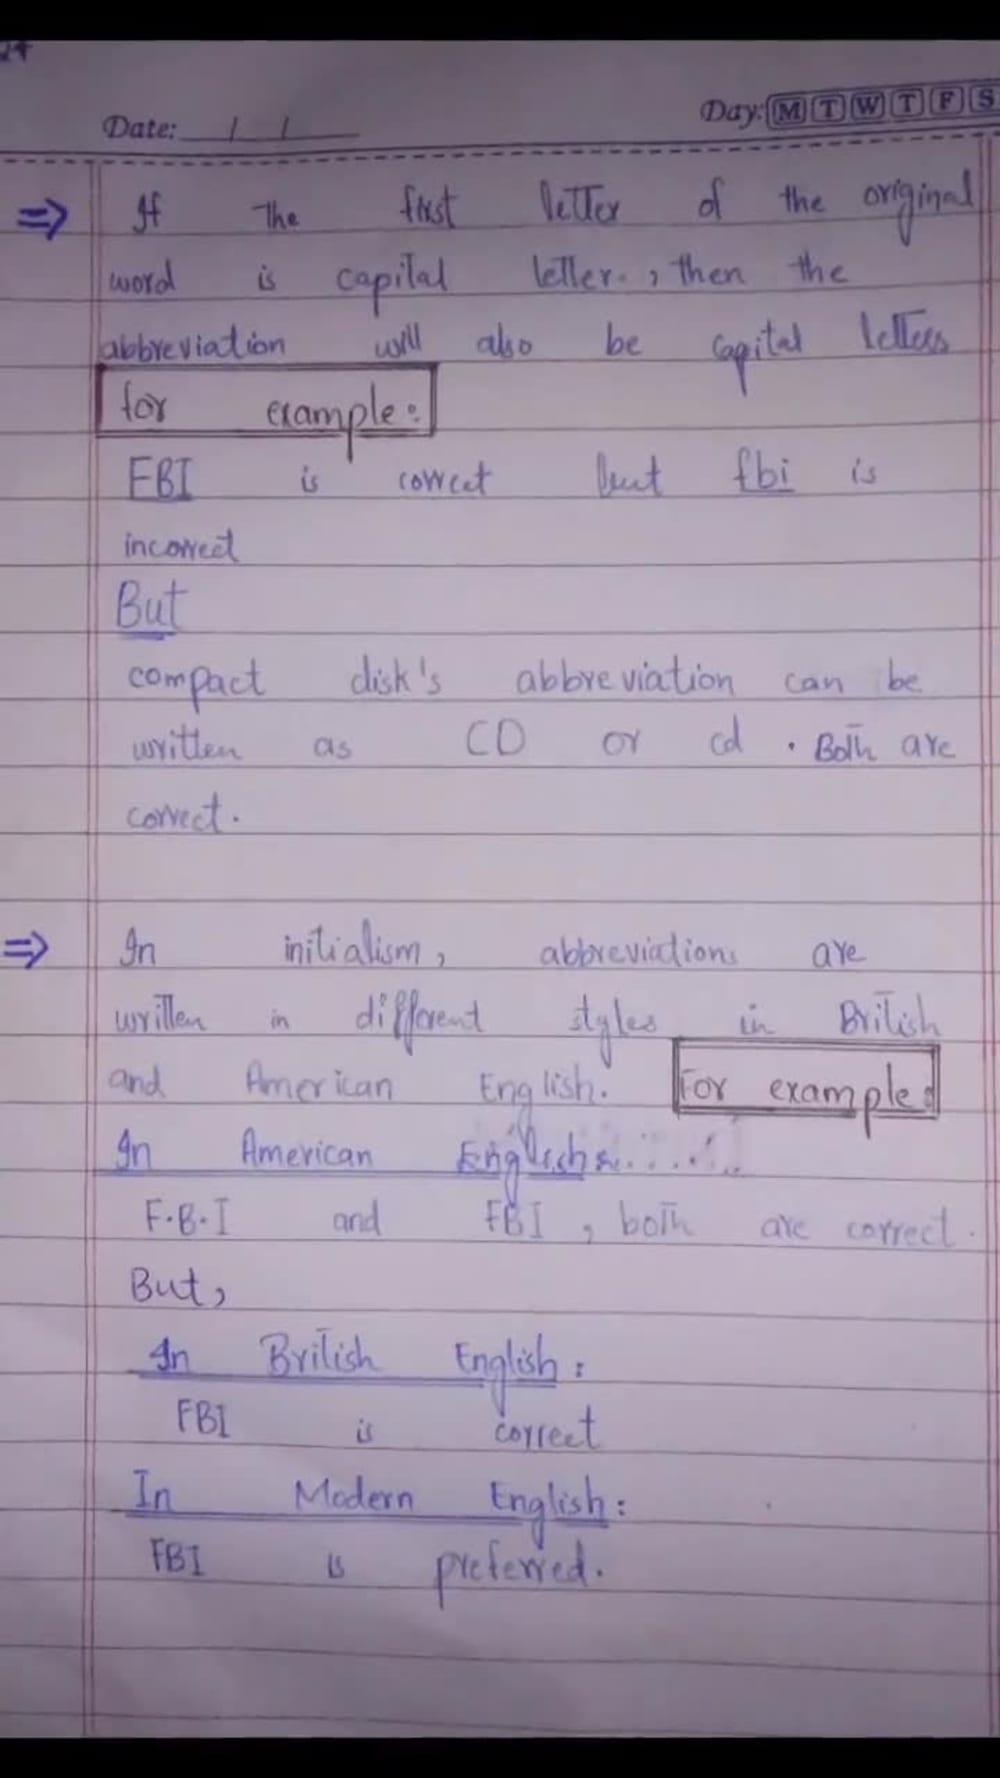 24
Date: / /
Day: M T W T F S
⇒ If the first letter of the original
word is capital letter., then the
abbreviation will also be capital letters
for example:
FBI is correct but fbi is
incorrect
But
compact disk's abbreviation can be
written as CD or cd . Both are
correct.
⇒ In initialism, abbreviations are
written in different styles in British
and American English. For example:
In American English:
F.B.I and FBI , both are correct.
But,
In British English:
FBI is correct
In Modern English:
FBI is preferred.